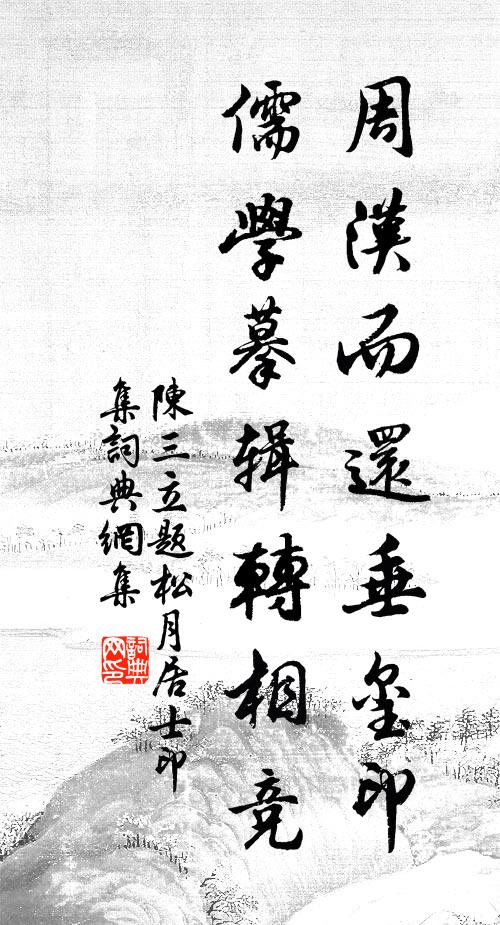 周漢而還垂璽印
儒學摹辑轉相竞
陳三立题松月居士印
集詞典網集
詞典網印